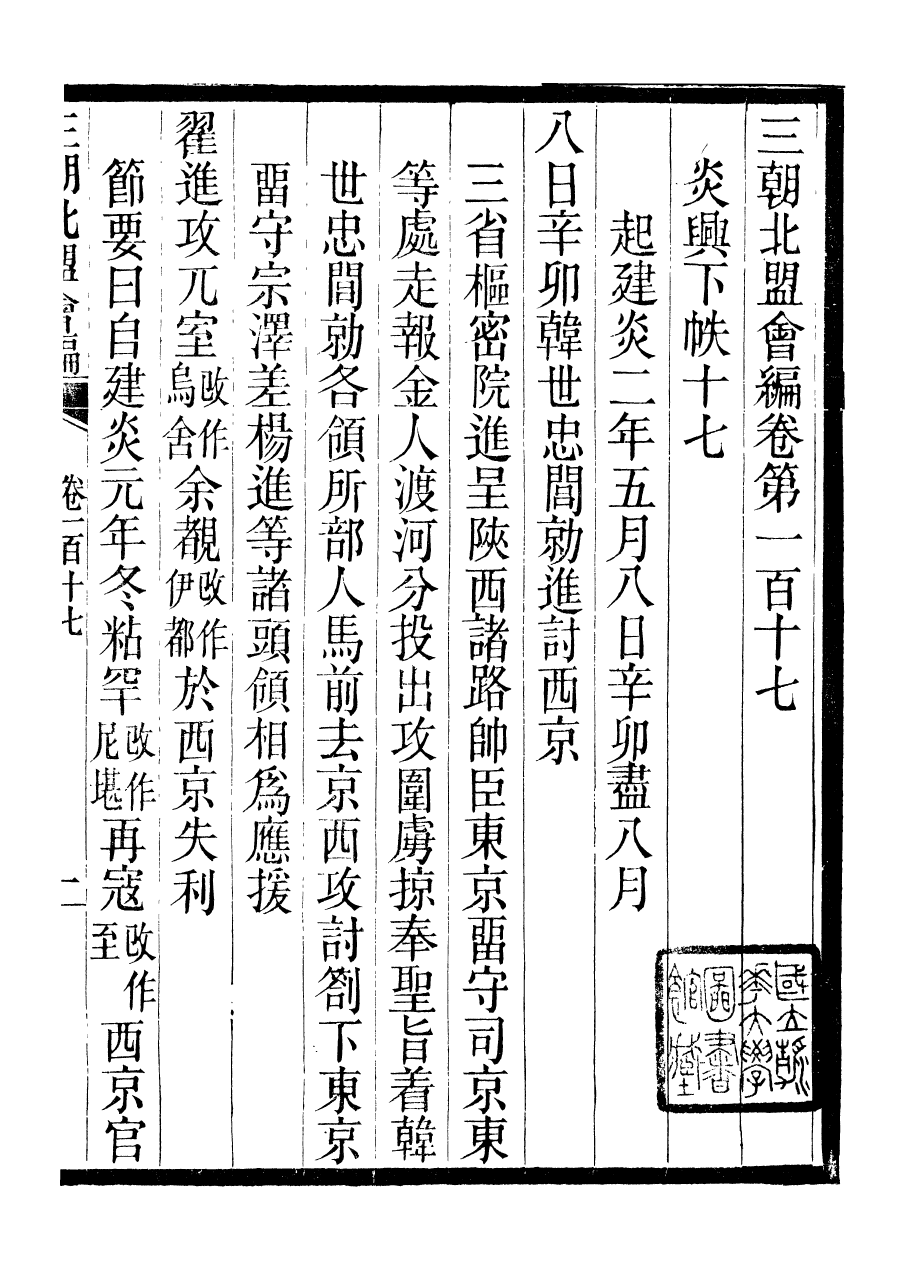 三朝北盟會編卷第一百十七
炎興下帙十七
起建炎二年五月八日辛卯盡八月
八日辛卯韓世忠閭勍進討西京
三省樞密院進呈陝西諸路帥臣東京畱守司京東
等處走報金人渡河分投出攻圍虜掠奉聖旨着韓
世忠閭勍各領所部人馬前去京西攻討劄下東京
畱守宗澤差楊進等諸頭領相爲應援
翟進攻兀室改作烏舍余覩改作伊都於西京失利
節要曰自建炎元年冬粘罕改作尼堪再寇改作至西京官
三朝北盟會編 卷一百十七 一
國立浙
江大學
圖書
館藏